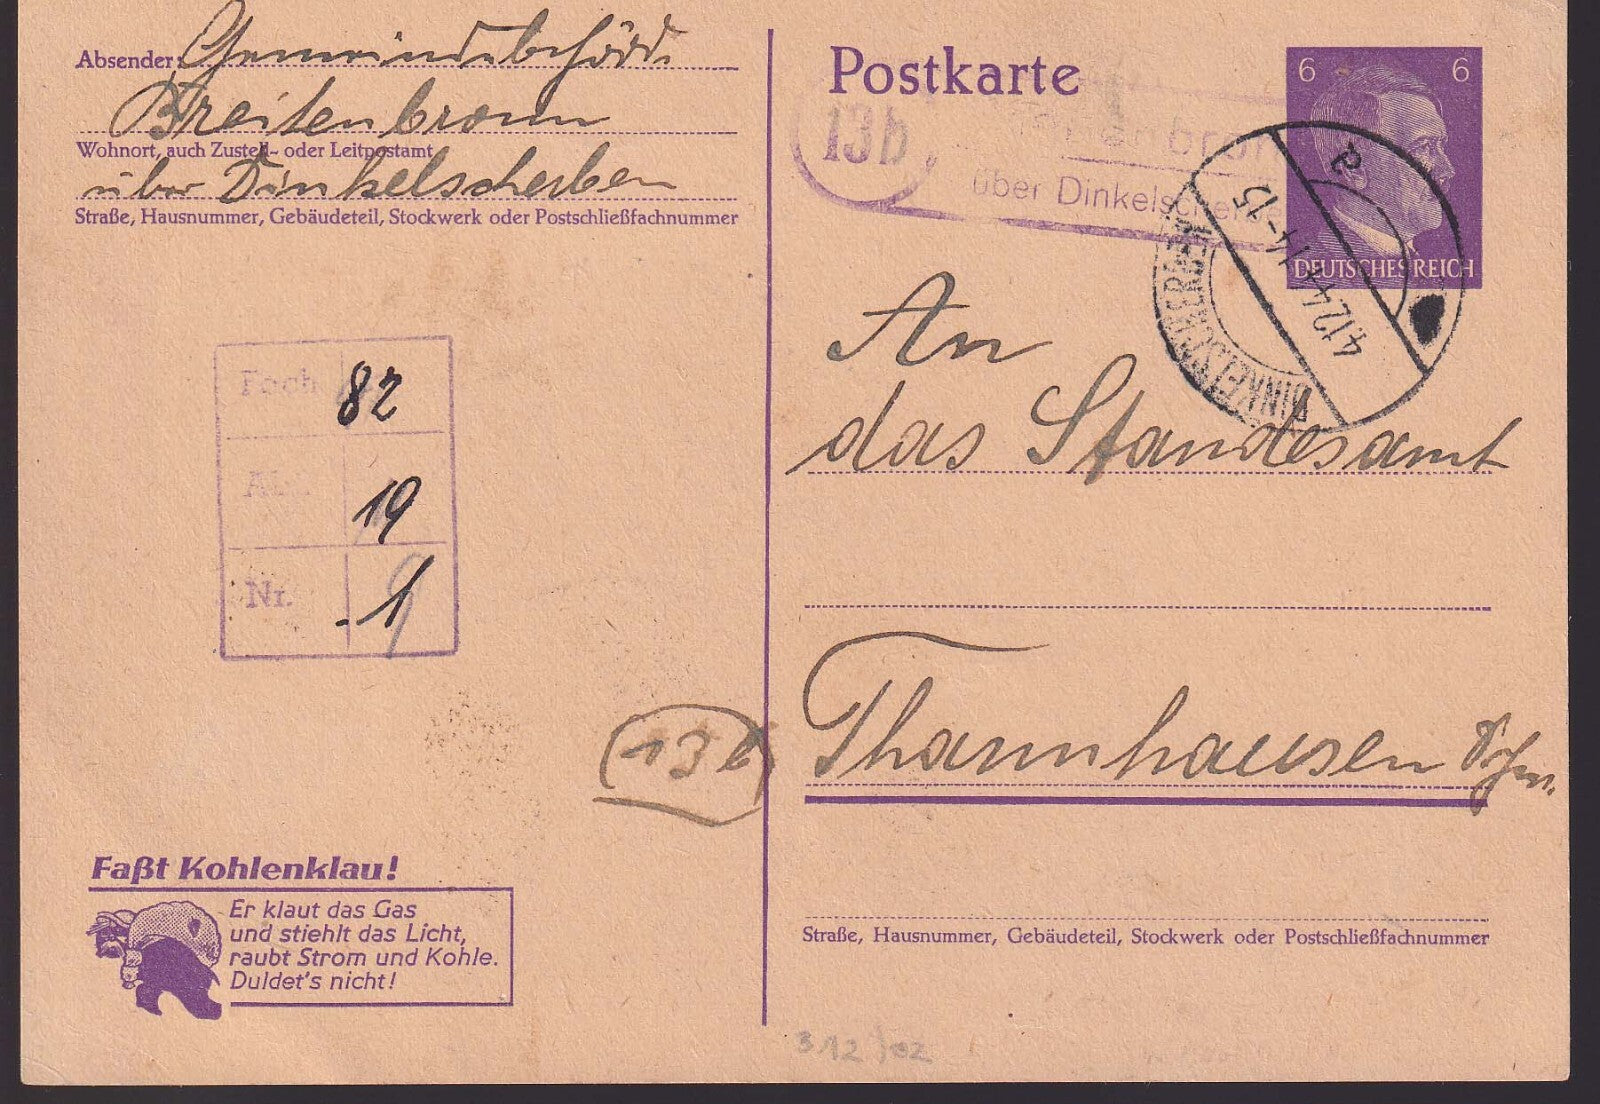 Absender: Gemeindebehörde
Breitenbronn
Wohnort, auch Zustell- oder Leitpostamt
über Dinkelscherben
Straße, Hausnummer, Gebäudeteil, Stockwerk oder Postschließfachnummer
Fach 82
19
Nr. 1
(13b)
Faßt Kohlenklau!
Er klaut das Gas
und stiehlt das Licht,
raubt Strom und Kohle.
Duldet's nicht!
Postkarte
6 6
DEUTSCHES REICH
13b
über Dinkelscherben
DINKELSCHERBEN
4.12.44 14-15
a
An
das Standesamt
Thannhausen Schw.
Straße, Hausnummer, Gebäudeteil, Stockwerk oder Postschließfachnummer